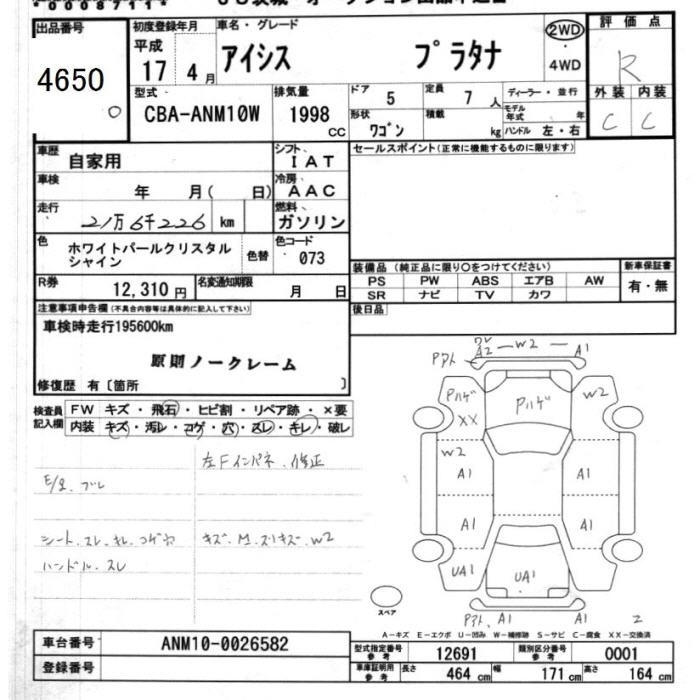 *000871 1*
出品番号 初度登録年月 車名・グレード 2WD 評価点
4650
平成 17年 4月
アイシス プラタナ
4WD
R
型式 排気量 ドア 5 定員 7人 ディーラー・並行 外装 内装
CBA-ANM10W 1998 CC
形状 ワゴン 積載 kg モデル年式 年 ハンドル 左・右
C C
車歴 自家用 シフト IAT セールスポイント(正常に機能するものに限ります)
車検 年 月( 日) 冷房 AAC
走行 21万6千226 km 燃料 ガソリン
色 ホワイトパールクリスタルシャイン 色替 色コード 073
装備品(純正品に限り○をつけてください) 新車保証書
PS PW ABS エアB AW 有・無
SR ナビ TV カワ
R券 12,310円 名変通知期限 月 日
後日品
注意事項申告欄(不具合内容等は具体的に記入して下さい)
車検時走行195600km
原則ノークレーム
修復歴 有〔箇所 〕
検査員記入欄 FW キズ・飛石・ヒビ割・リペア跡・×要
内装 キズ・汚レ・コゲ・穴・スレ・キレ・破レ
左Fインパネ、修正
シート、スレ、キレ、コゲ穴
キズ、M、スリキズ、W2
ハンドル、スレ
A2 W2 A1
Pハゲ Pハゲ W2
XX
W2
A1 A1
A1 A1
UA1 UA1 A1
A1 A1 2
スペア
A-キズ E-エクボ U-凹み W-補修跡 S-サビ C-腐食 XX-交換済
車台番号 ANM10-0026582
型式指定番号 参考 12691 類別区分番号 参考 0001
登録番号
車庫証明用 参考 長さ 464 cm 幅 171 cm 高さ 164 cm